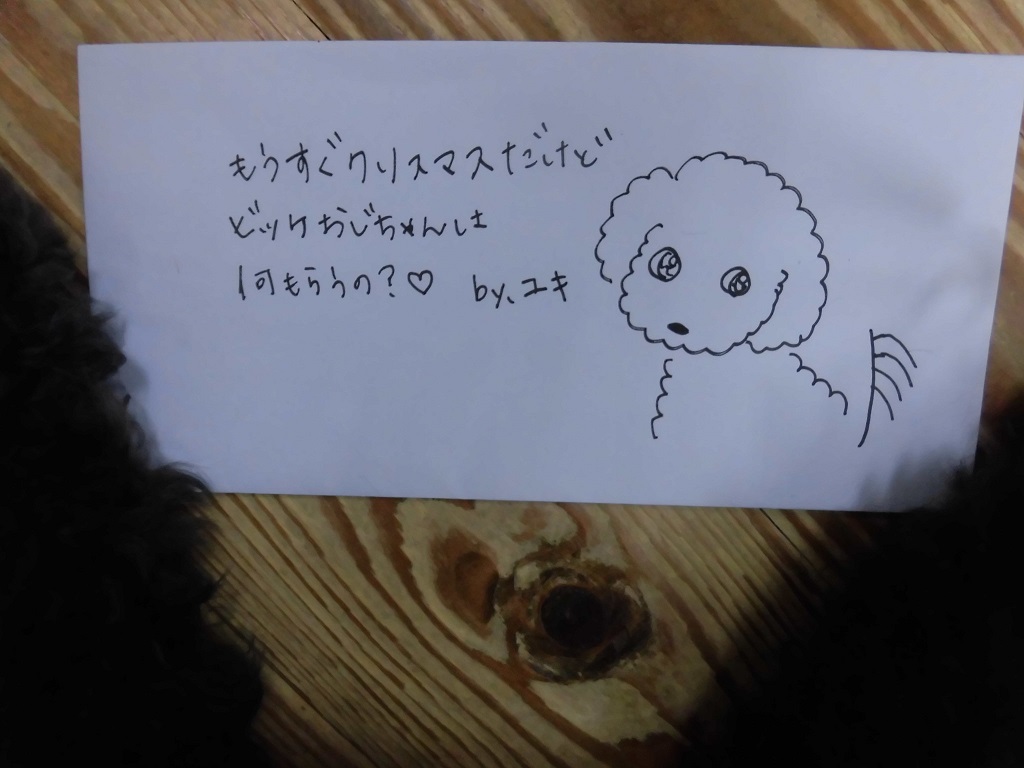 もうすぐクリスマスだけど
ビッケおじちゃんは
何もらうの?♡ by、ユキ